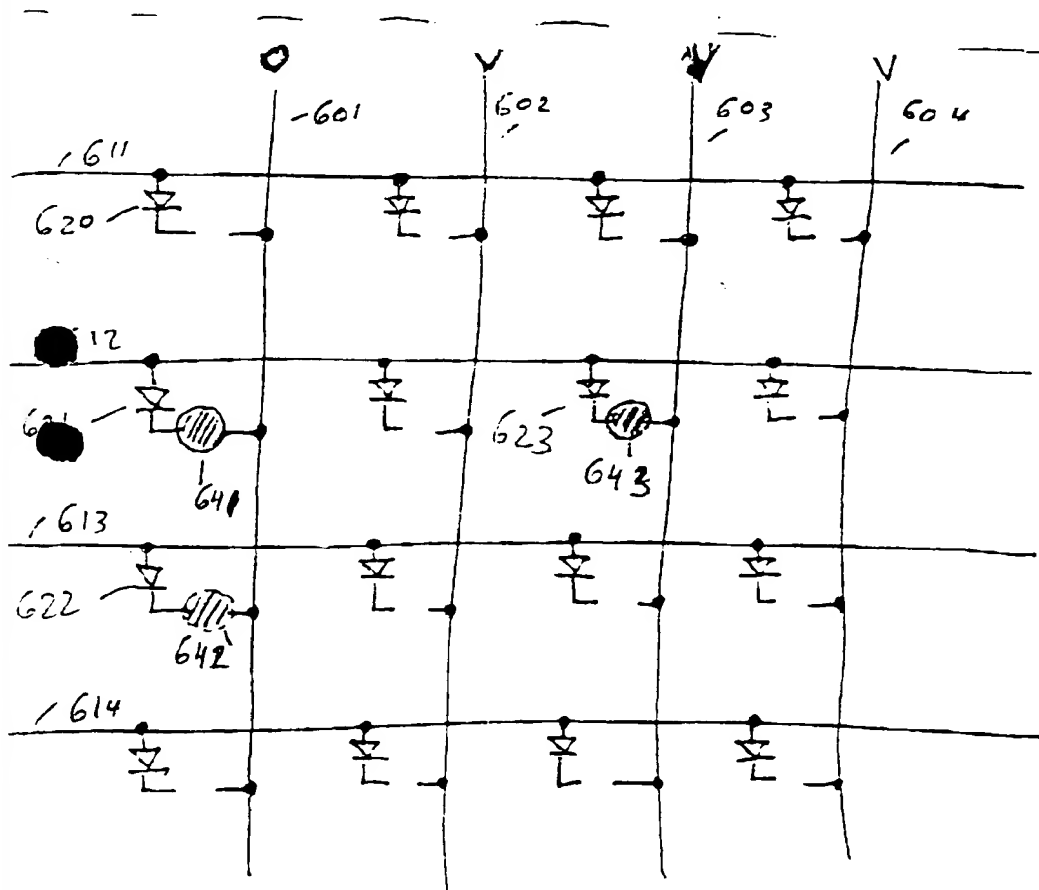 O V V V
601 602 603 604
611
620
12
623
641 643
613
622
642
614